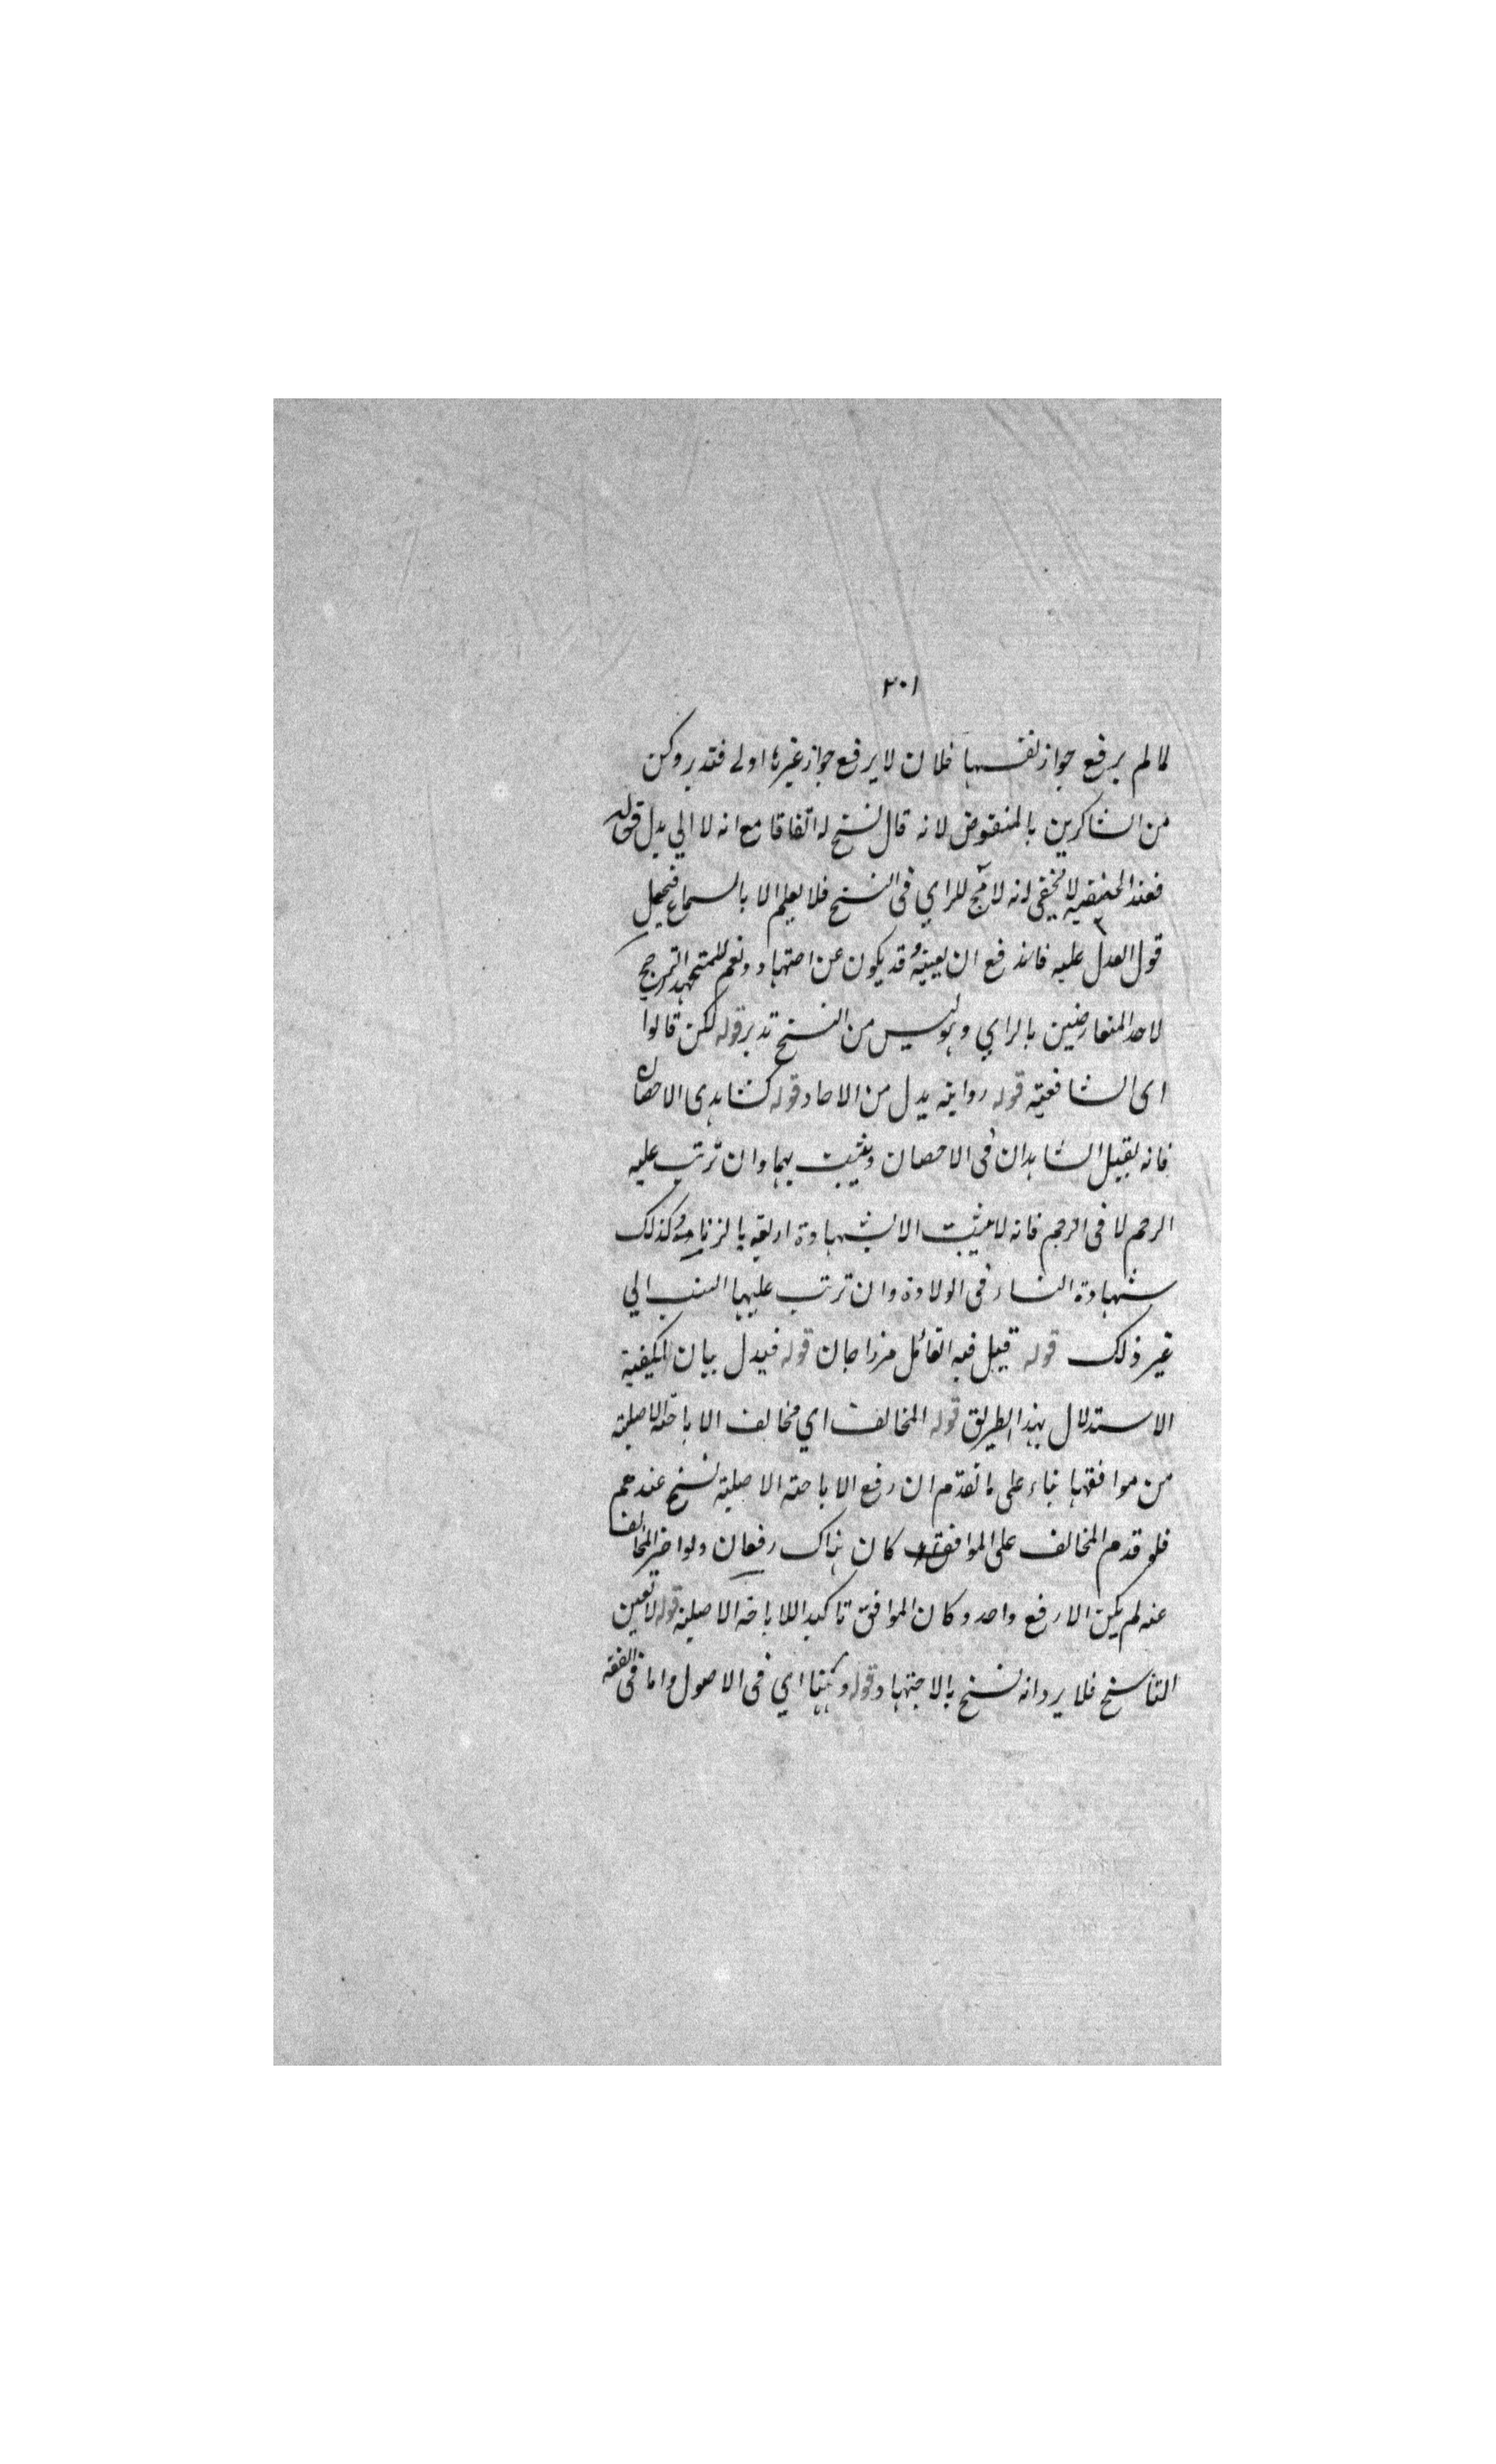 ٢٠١
لما لم يرفع جواز نفسها فلان لا يرفع جواز غيرها اولى فتدبر وكن
من الشاكرين بالمنقوض لانه قال نسخ له اتفاقا مع انه لا الي بدل قوله
فعند الحنفية لا يخفى انه لا للراي فى النسخ فلا يعلم الا بالسماع فيحمل
قول العدل عليه فاندفع ان تعيينه قد يكون عن اجتهاد ونعم للمجتهد الترجيح
لاحد المتعارضين بالراي وهو ليس من النسخ تدبر قوله لكن قالوا
اى الشافعية قوله رواية بدل من الاحاد قوله كشاهدى الاحصان
فانه يقبل الشاهدان فى الاحصان ويثبت بهما وان ترتب عليه
الرجم لا فى الرجم فانه لا يثبت الا بشهادة اربعة بالزنا وكذلك
شهادة النساء فى الولادة وان ترتب عليها النسب الي
غير ذلك قوله قيل فيه القائل مرزا جان قوله فيدل بيان لكيفية
الاستدلال بهذا الطريق قوله المخالف اي مخالف الاباحة الاصلية
من موافقها بناء على ما تقدم ان رفع الاباحة الاصلية نسخ عندهم
فلو قدم المخالف على الموافق كان هناك رفعان ولو اخر المخالف
عنه لم يكن الا رفع واحد وكان الموافق تاكيدا للاباحة الاصلية قوله لا تعيين
الناسخ فلا يرد انه نسخ بالاجتهاد قوله وههنا اي فى الاصول واما فى الفقه